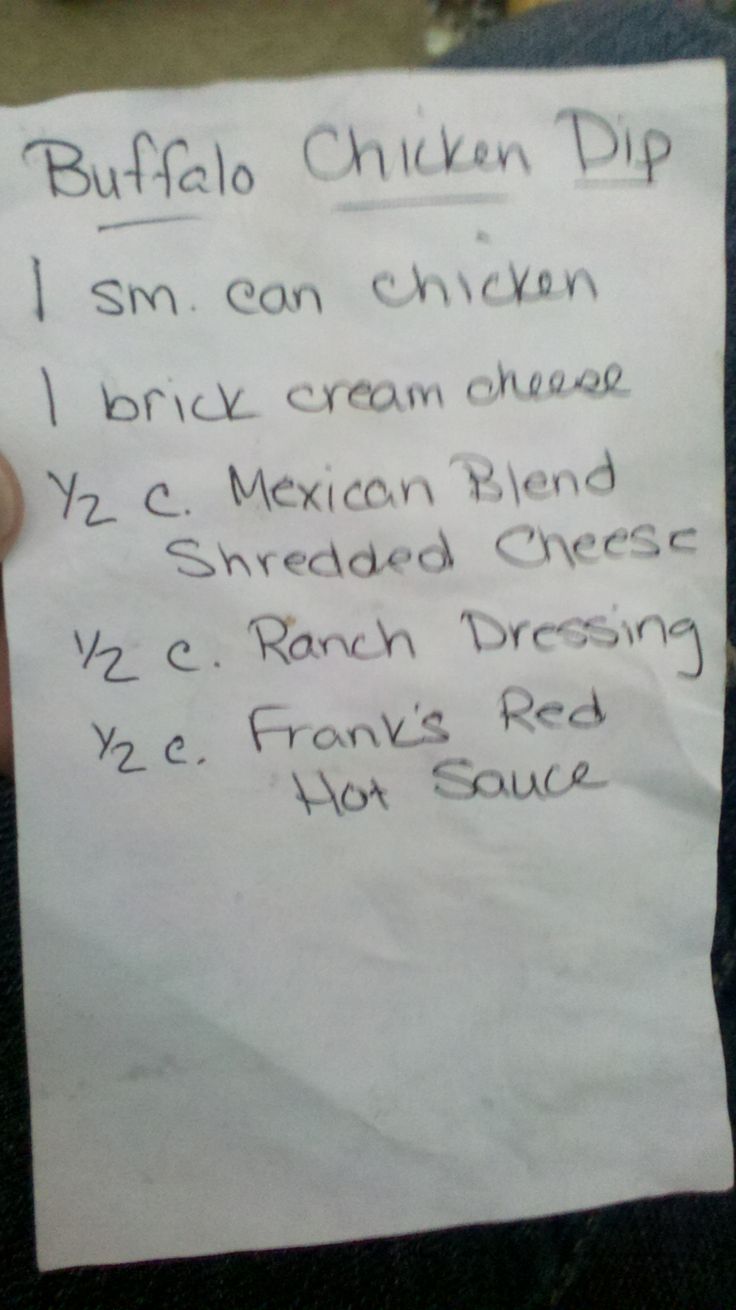 Buffalo Chicken Dip
1 sm. can chicken
1 brick cream cheese
1/2 c. Mexican Blend
Shredded Cheese
1/2 c. Ranch Dressing
1/2 c. Frank's Red
Hot Sauce